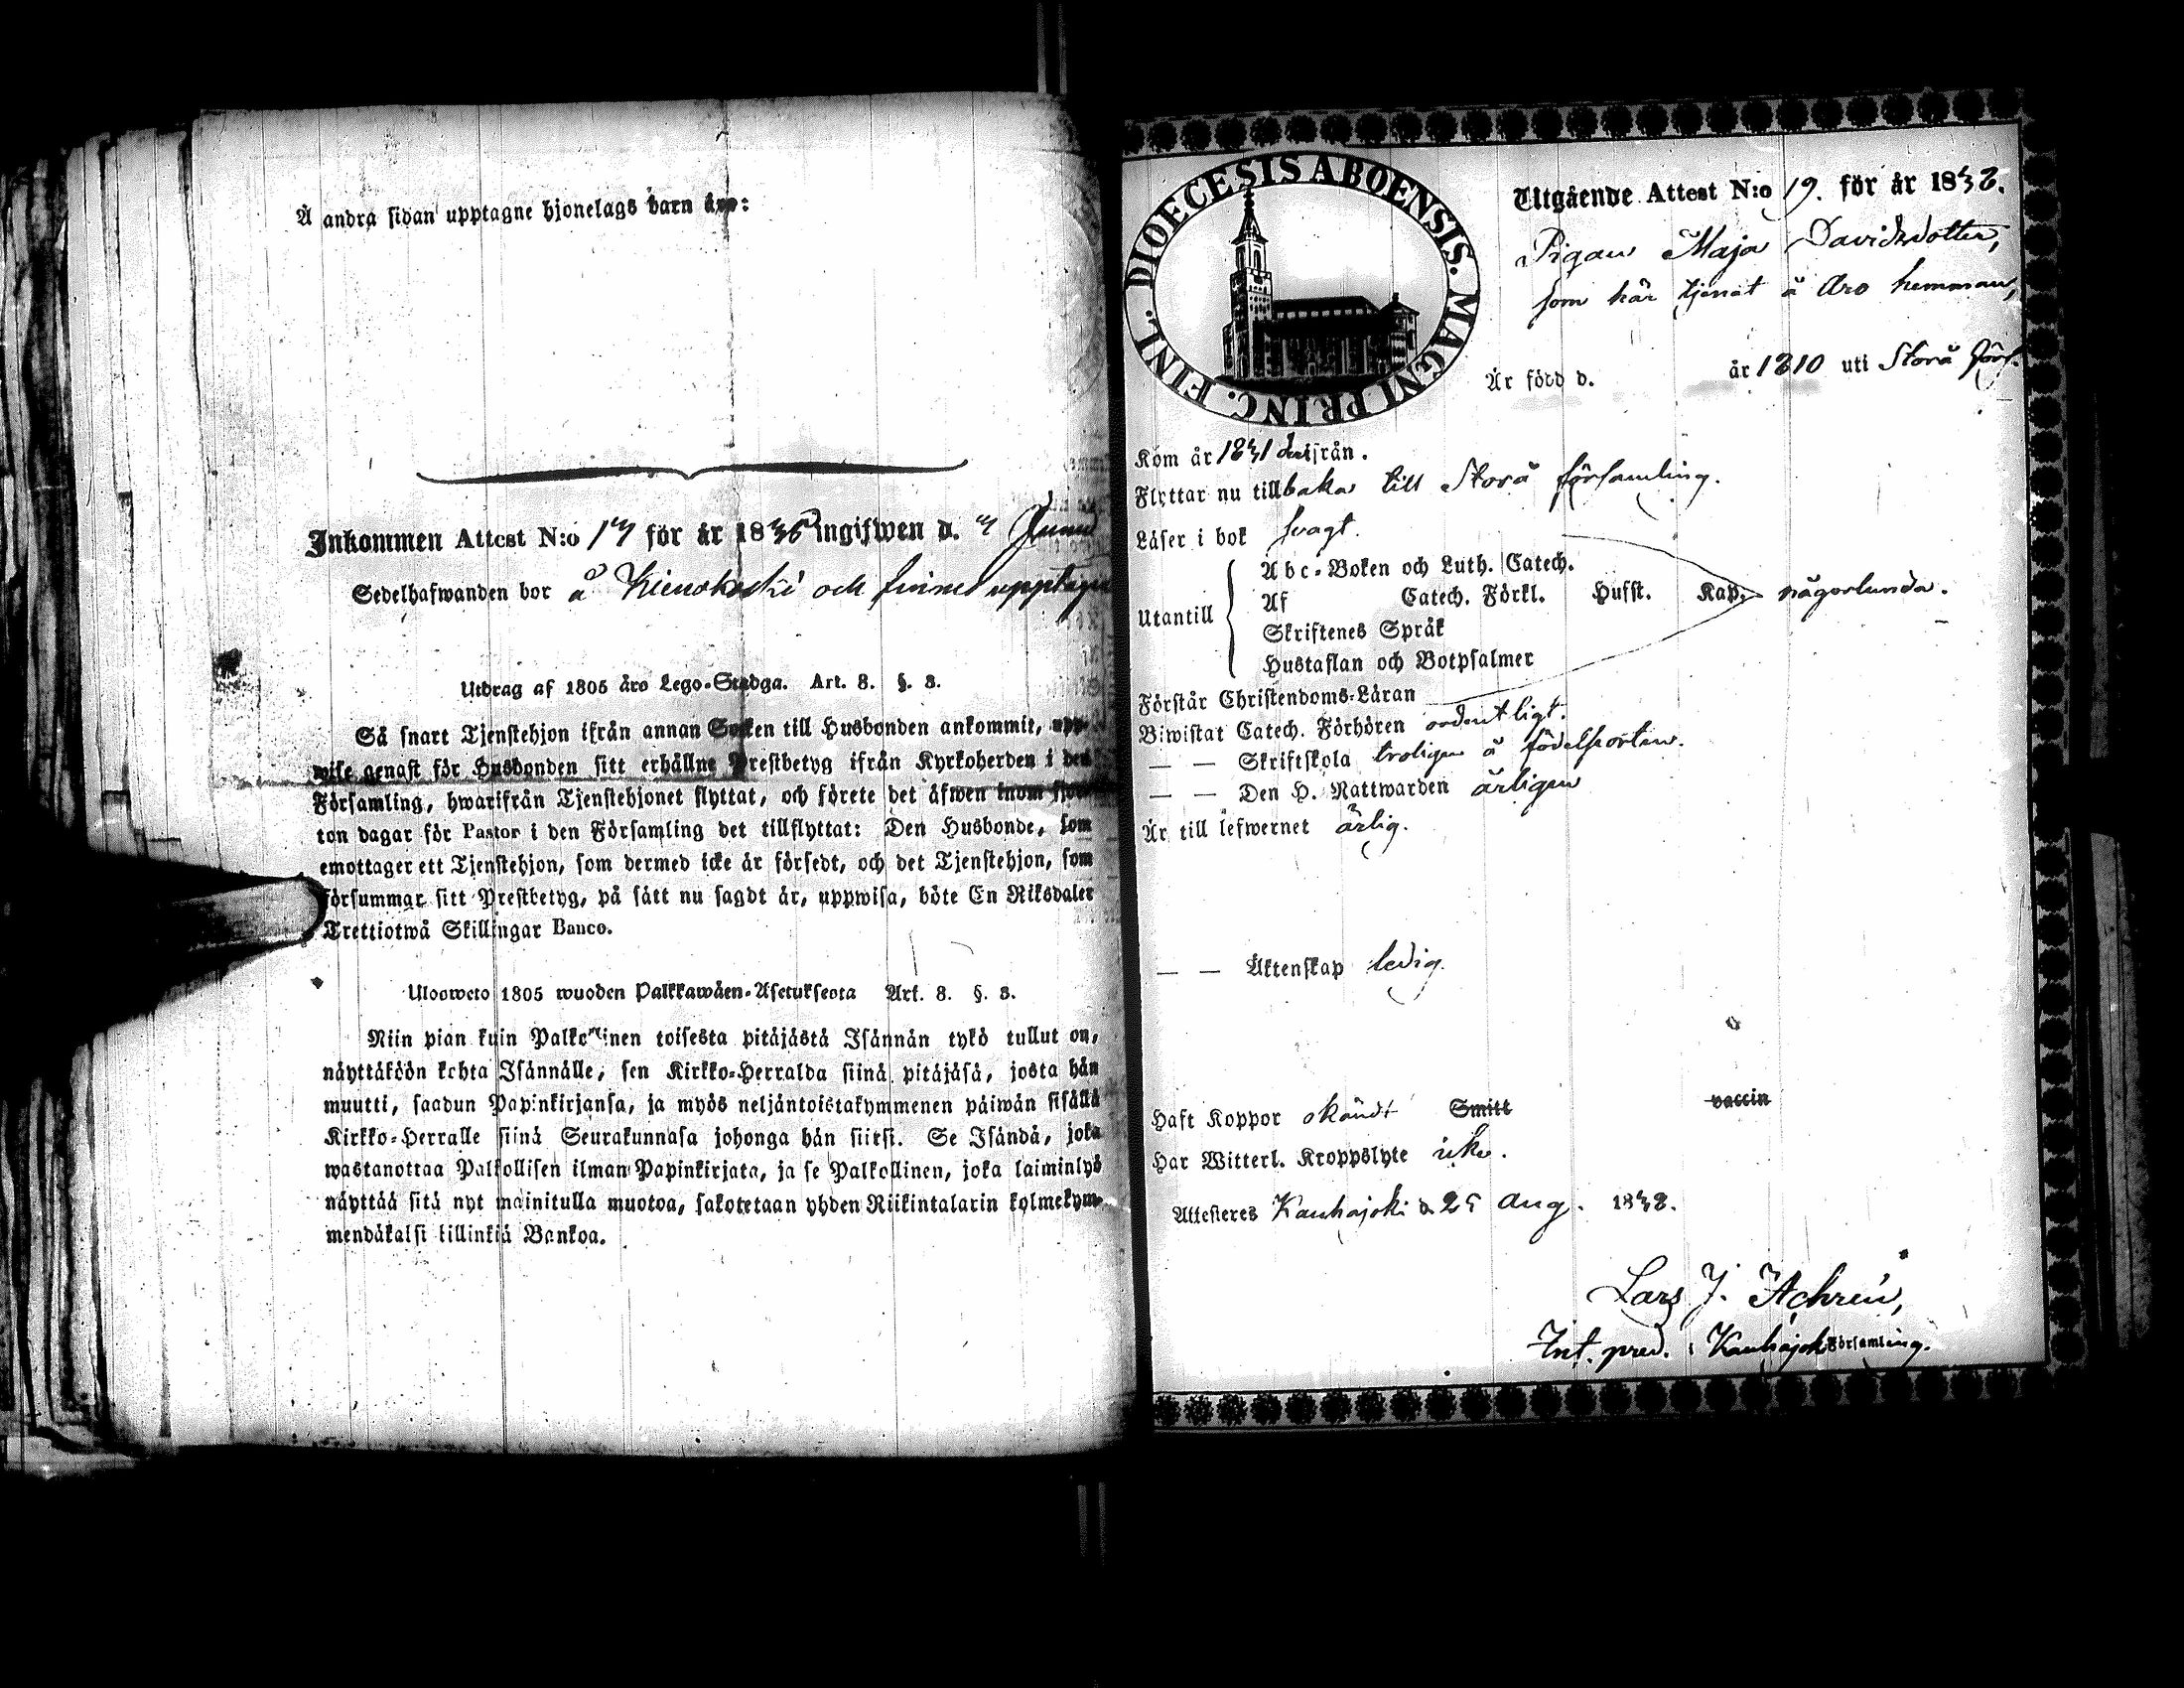 Å andra sidan upptagne hjonelags barn äro:
Inkommen Attest N:o 17 för år 1836 ingifwen d.
Sedelhafwanden bor å och finnes upptagen
Utdrag af 1805 års Lego-Stadga. Art. 8. §. 3.
Så snart Tjenstehjon ifrån annan Socken till Husbonden ankommit, upp-
wise genast för Husbonden sitt erhållne Prestbetyg ifrån Kyrkoherden i den
Församling, hwarifrån Tjenstehjonet flyttat, och förete det äfwen inom fjor-
ton dagar för Pastor i den Församling det tillflyttat: Den Husbonde, som
emottager ett Tjenstehjon, som dermed icke är försedt, och det Tjenstehjon, som
försummar sitt Prestbetyg, på sätt nu sagdt är, uppwisa, böte En Riksdaler
Trettiotwå Skillingar Banco.
Ulosweto 1805 wuoden Palkkawäen-Asetuksesta Art. 8. §. 3.
Niin pian kuin Palkollinen toisesta pitäjästä Isännän tykö tullut on,
näyttäköön kohta Isännälle, sen Kirkko-Herralda siinä pitäjäsä, josta hän
muutti, saadun Papinkirjansa, ja myös neljäntoistakymmenen päiwän sisällä
Kirkko-Herralle siinä Seurakunnasa johonga hän siirsi. Se Isändä, joka
wastanottaa Palkollisen ilman Papinkirjata, ja se Palkollinen, joka laiminlyö
näyttää sitä nyt mainitulla muotoa, sakotetaan yhden Riikintalarin kolmekym-
mendäkaksi killinkiä Bankoa.
DIOECESIS ABOENSIS. MAGNI PRINC. FINL.
Utgående Attest N:o 19. för år 1838.
Pigan Maja Davidsdotter,
som här tjenat å Aro hemman,
Är född d. år 1810 uti Storå förs.
Kom år 1831 derifrån.
Flyttar nu tillbaka till Storå församling.
Läser i bok svagt.
Utantill
Abc-Boken och Luth. Catech.
Af Catech. Förkl. Husst. Kap. någorlunda.
Skriftenes Språk
Hustaflan och Botpsalmer
Förstår Christendoms-Läran
Biwistat Catech. Förhören ordentligt.
— — Skriftskola troligen å födelseorten.
— — Den H. Nattwarden årligen
Är till lefwernet ärlig.
— — Äktenskap ledig.
Haft Koppor okändt Smitt vaccin
Har Witterl. Kroppslyte icke.
Attesteres Kauhajoki d. 25 Aug. 1838.
Lars J. Achrén,
Int. pred. i Kauhajoki Församling.